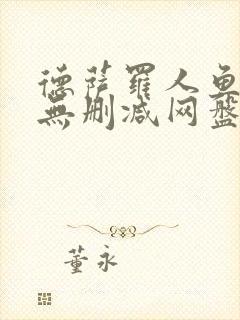 德萨罗人鱼
無删减网盘
董永